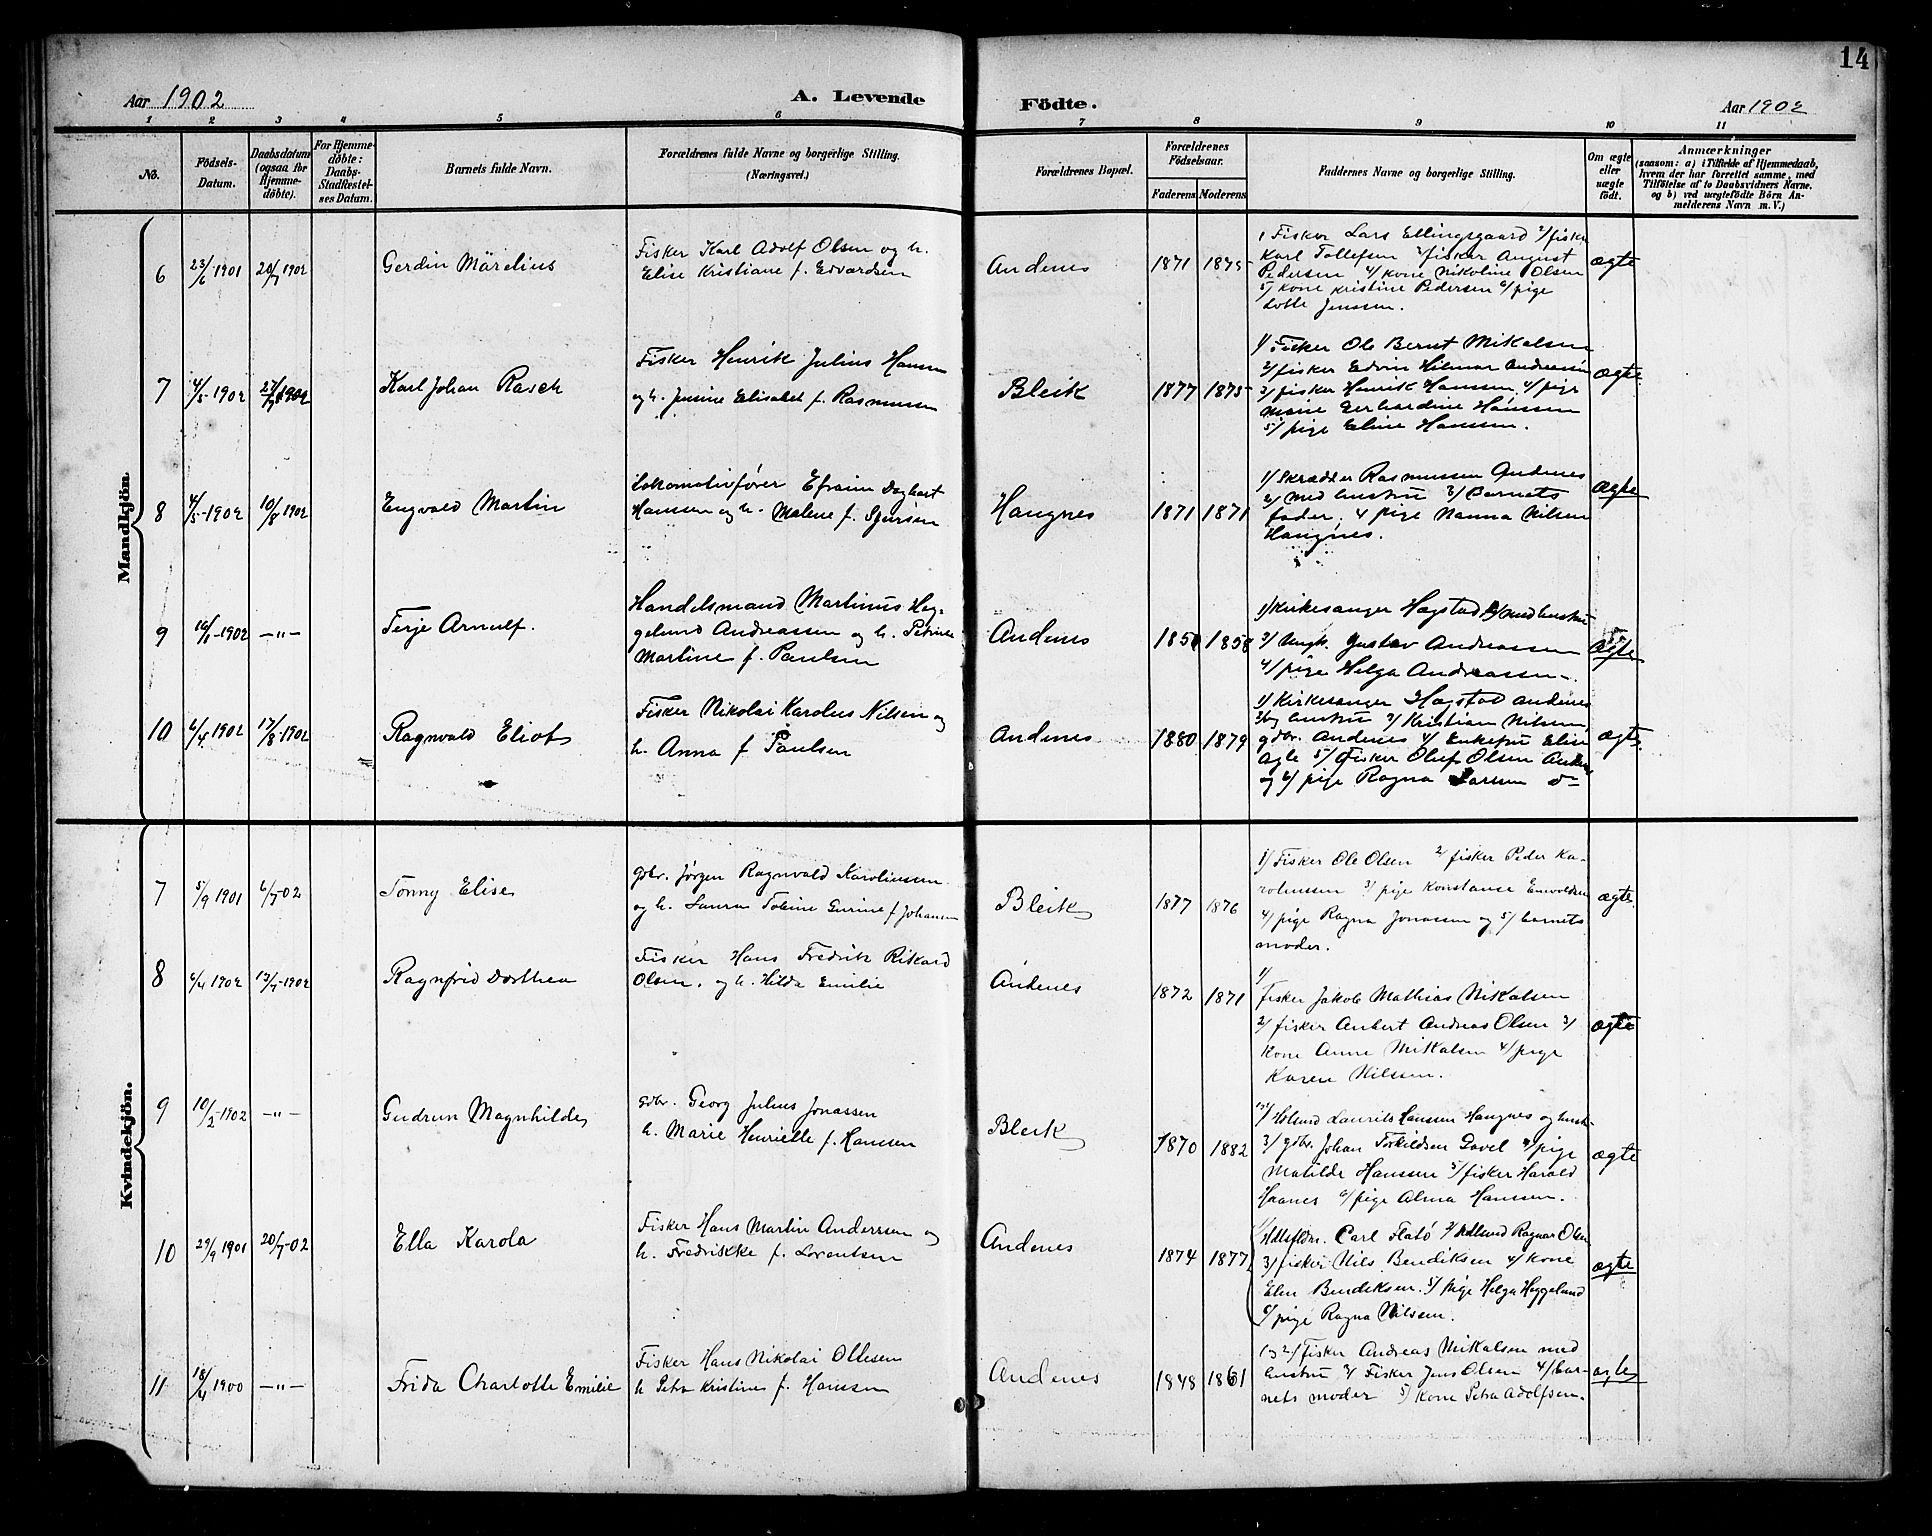 14
Aar 1902
A. Levende
Födte.
Aar 1902
1 2 3 4 5 6 7 8 9 10 11
No.
Födsels-
Datum.
Daabsdatum
(ogsaa for
Hjemme-
döbte).
For Hjemme-
döbte:
Daabs-
Stadfæstel-
ses Datum.
Barnets fulde Navn.
Forældrenes fulde Navne og borgerlige Stilling.
(Næringsvei.)
Forældrenes Bopæl.
Forældrenes
Födselsaar.
Faderens Moderens
Faddernes Navne og borgerlige Stilling.
Om ægte
eller
uægte
födt.
Anmærkninger
(saasom: a) i Tilfælde af Hjemmedaab,
hvem der har forrettet samme, med
Tilföielse af to Daabsvidners Navne.
og b) ved uægtefödte Börn An-
melderens Navn m. V.)
Mandkjön.
6
23/6 1901
20/7 1902
Gerdin Märelius
Fisker Karl Adolf Olsen og h.
Elise Kristiane f. Edvardsen
Andenes
1871
1875
1 Fisker Lars Ellingsgaard 2/ fisker
Karl Tollefsen 3/ fisker August
Pedersen 4/ kone Nikoline Olsen
5/ kone Kristine Pedersen 6/ pige
Lotte Jenssen.
ægte
7
4/5 1902
27/7 1902
Karl Johan Rasch
Fisker Henrik Julius Hansen
og h. Jensine Elisabet f. Rasmussen
Bleik
1877
1875
1/ Fisker Ole Bernt Mikalsen
2/ fisker Edvin Hilmar Andreasen
3/ fisker Henrik Hanssen 4/ pige
Marie Gerhardine Hanssen
5/ pige Eline Hanssen.
ægte
8
4/5 1902
10/8 1902
Engvald Martin
Lokomotivfører Efraim Daghart
Hanssen og h. Malene f. Sjursen
Haugnes
1871
1871
1/ Skrædder Rasmussen Andenes
2/ med hustru 3/ Barnets
fader, 4 pige Nanna Nilsen
Haugnes.
ægte
9
16/1 1902
—"—
Terje Arnulf.
Handelsmand Martinus Heg-
gelund Andreassen og h. Petrine
Martine f. Paulsen
Andenes
1858
1/ Kirkesanger Hogstad 2/ med hustru
3/ Ungk. Gustav Andreassen
4/ pige Helga Andreassen.
ægte
10
6/4 1902
17/8 1902
Ragnvald Eliot
Fisker Nikolai Karolus Nilsen og
h. Anna f Paulsen
Andenes
1880
1879
1/ Kirkesanger Hogstad Andenes
2/ og hustru 3/ Kristian Nilsen
gdbr. Andenes 4/ Enkefru Elise
Agle 5/ Fisker Oluf Olsen Andenes
og 6/ pige Ragna Larsen do
ægte
Kvindekjön.
7
5/9 1901
6/7 02
Tonny Elise
gdbr. Jørgen Ragnvald Karoliussen
og h. Laura Tobine Gurine f. Johansen
Bleik
1877
1876
1/ Fisker Ole Olsen 2/ fisker Peder Ka-
roliussen 3/ pige Konstanse Enevoldsen
4/ pige Ragna Jonassen og 5/ barnets
moder.
ægte
8
6/4 1902
13/7 1902
Ragnfrid Dorthea
Fisker Hans Fredrik Rikard
Olsen. og h. Hilda Emilie
Andenes
1872
1871
1/
Fisker Jakob Mathias Mikalsen
2/ fisker Anbert Andreas Olsen 3/
kone Anne Mikalsen 4/ pige
Karen Nilssen.
ægte
9
10/2 1902
—"—
Gudrun Magnhilde
gdbr. Georg Julius Jonassen
h. Marie Henriette f. Hanssen
Bleik
1870
1882
Laurits Hanssen Haugnes og hustr.
3/ gdbr. Johan Torkildsen Gavel 4/ pige
Matilde Hanssen 5/ fisker Harald
Haanes 6/ pige Alma Hanssen.
ægte
10
29/9 1901
20/7 02
Ella Karola
Fisker Hans Martin Anderssen og
h. Fredrikke f. Lorentsen
Andenes
1874
1877
Carl Flatö 2/ Ragnar Olsen
3/ fisker Nils Bendiksen 4/ kone
Elen Bendiksen. 5/ pige Helga Heggelund
6/ pige Ragna Nilssen.
ægte
11
18/4 1900
—"—
Frida Charlotte Emilie
Fisker Hans Nikolai Ottesen
h Petra Kristine f. Hanssen
Andenes
1848
1861
1 2/ fisker Andreas Mikalsen med
hustru 3/ Fisker Jens Olsen 4/ bar-
nets moder 5/ kone Petra Adolfsen.
ægte